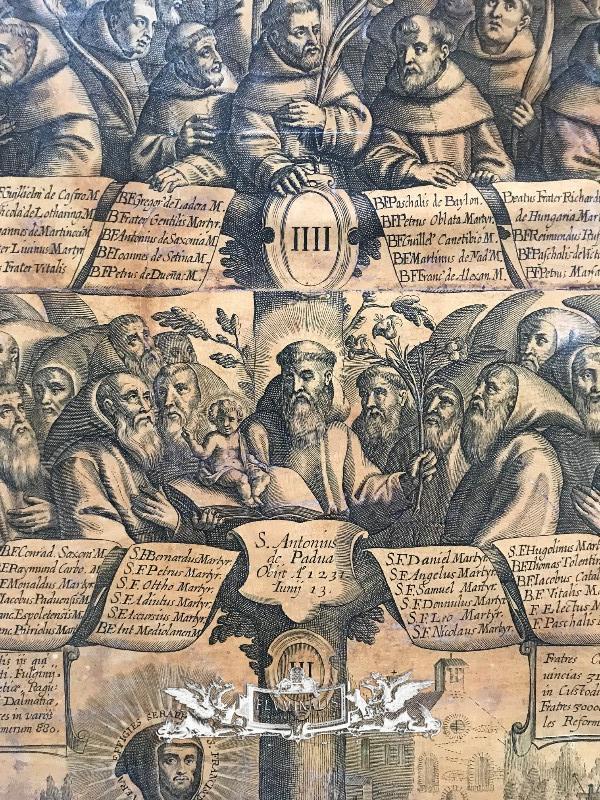 de Castro M.
de Lotharing. M.
Frater Vitalis
B F Gregor de Ladza M.
B F Frater Gentilis Martyr.
B F Antonius de Saxonia M
B F Ioannes de Setina M
B F Petrus de Dueñas M.
IIII
B F Paschalis de Baylon.
B F Petrus Oblata Martyr.
B F Guillel Canetibio M.
B F Martinus de Mad M
B F Franc de Alexan M
Beatus Frater Richard
de Hungaria Mar
B F Reimundus Ruf
B F Paschalis de Vict
B F Petrus Mar
B F Conrad. Saxoni M
B F Raymund Carbo. M
F Monaldus Martyr
Iacobus Paduensis M
S F Bernardus Martyr
S F Petrus Martyr.
S. F. Ottho Martyr.
S F Adiutus Martyr.
S F Accursius Martyr.
B F Ant Mediolanen M
S. Antonius
de Padua
Obijt A 1231
Iunij 13.
S. F. Daniel Martyr.
S F Angelus Martyr
S F Samuel Martyr
S F Domnulus Martyr
S. F. Leo Martyr.
S. F. Nicolaus Martyr.
S. F Hugolinus Mart
B F Thomas Tolentin
B F Iacobus Catal
B. F Vitalis M
F Electus M
F Paschalis
III
Dalmatia,
in varijs
merum 880.
Fratres C
vincias 31
in Custodi
Fratres 3000
les Reform